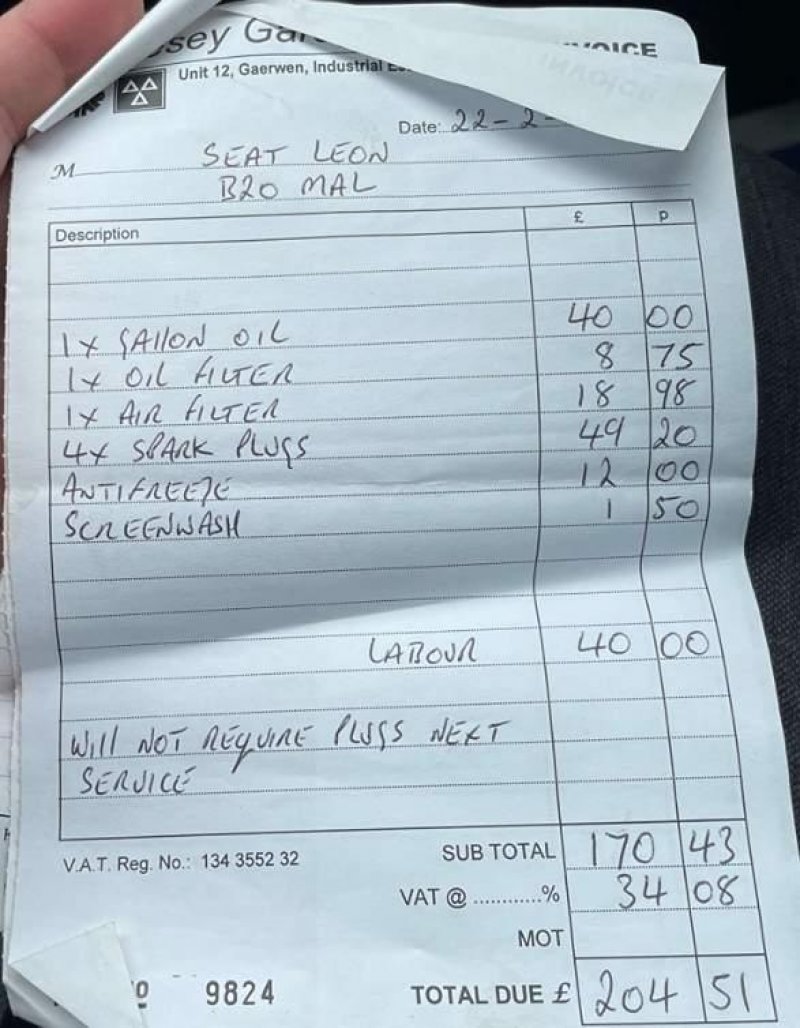 sey Gar
INVOICE
Unit 12, Gaerwen, Industrial
Date: 22-2-
M SEAT LEON
B20 MAL
Description £ p
1x GALLON OIL 40 00
1x OIL FILTER 8 75
1x AIR FILTER 18 98
4x SPARK PLUGS 49 20
ANTIFREEZE 12 00
SCREENWASH 1 50
LABOUR 40 00
WILL NOT REQUIRE PLUGS NEXT
SERVICE
V.A.T. Reg. No.: 134 3552 32
SUB TOTAL 170 43
VAT @ ............% 34 08
MOT
9824
TOTAL DUE £ 204 51